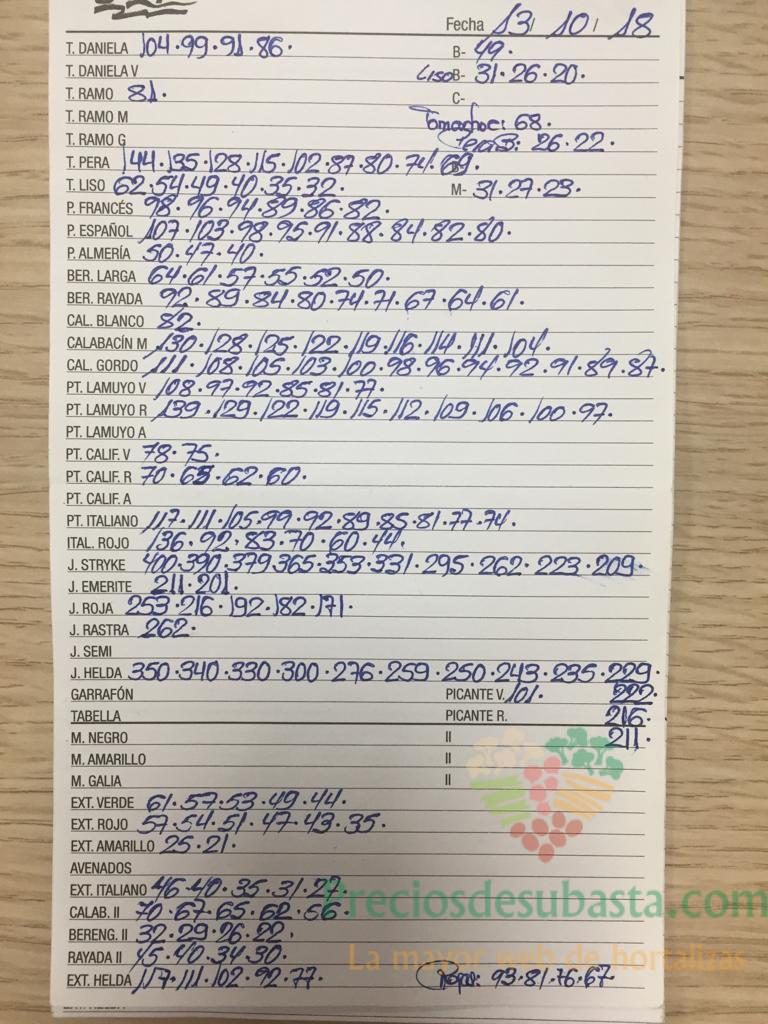 Fecha 13/ 10/ 18
T. DANIELA 104·99·91·86· B- 49·
T. DANELA V LISO B- 31·26·20·
T. RAMO 81· C-
T. RAMO M Tomachoc: 68·
T. RAMO G Pera B: 26·22·
T. PERA 144·135·128·115·102·87·80·74·69·
T. LISO 62·54·49·40·35·32· M- 31·27·23·
P. FRANCÉS 98·96·94·89·86·82·
P. ESPAÑOL 107·103·98·95·91·88·84·82·80·
P. ALMERÍA 50·47·40·
BER. LARGA 64·61·57·55·52·50·
BER. RAYADA 92·89·84·80·74·71·67·64·61·
CAL. BLANCO 82·
CALABACÍN M 130·128·125·122·119·116·114·111·104·
CAL. GORDO 111·108·105·103·100·98·96·94·92·91·89·87·
PT. LAMUYO V 108·97·92·85·81·77·
PT. LAMUYO R 139·129·122·119·115·112·109·106·100·97·
PT. LAMUYO A
PT. CALIF. V 78·75·
PT. CALIF. R 70·65·62·60·
PT. CALIF. A
PT. ITALIANO 117·111·105·99·92·89·85·81·77·74·
ITAL. ROJO 136·92·83·70·60·44·
J. STRYKE 400·390·379·365·353·331·295·262·223·209·
J. EMERITE 211·201·
J. ROJA 253·216·192·182·171·
J. RASTRA 262·
J. SEMI
J. HELDA 350·340·330·300·276·259·250·243·235·229·
GARRAFÓN PICANTE V. 101· 222·
TABELLA PICANTE R. 216·
M. NEGRO II 211·
M. AMARILLO II
M. GALIA II
EXT. VERDE 61·57·53·49·44·
EXT. ROJO 57·54·51·47·43·35·
EXT. AMARILLO 25·21·
AVENADOS
EXT. ITALIANO 46·40·35·31·27·
Preciosdesubasta.com
CALAB. II 70·67·65·62·56·
BERENG. II 32·29·26·22·
RAYADA II 45·40·34·30·
La mayor web de hortalizas
EXT. HELDA 117·111·102·92·77· 93·81·76·67·